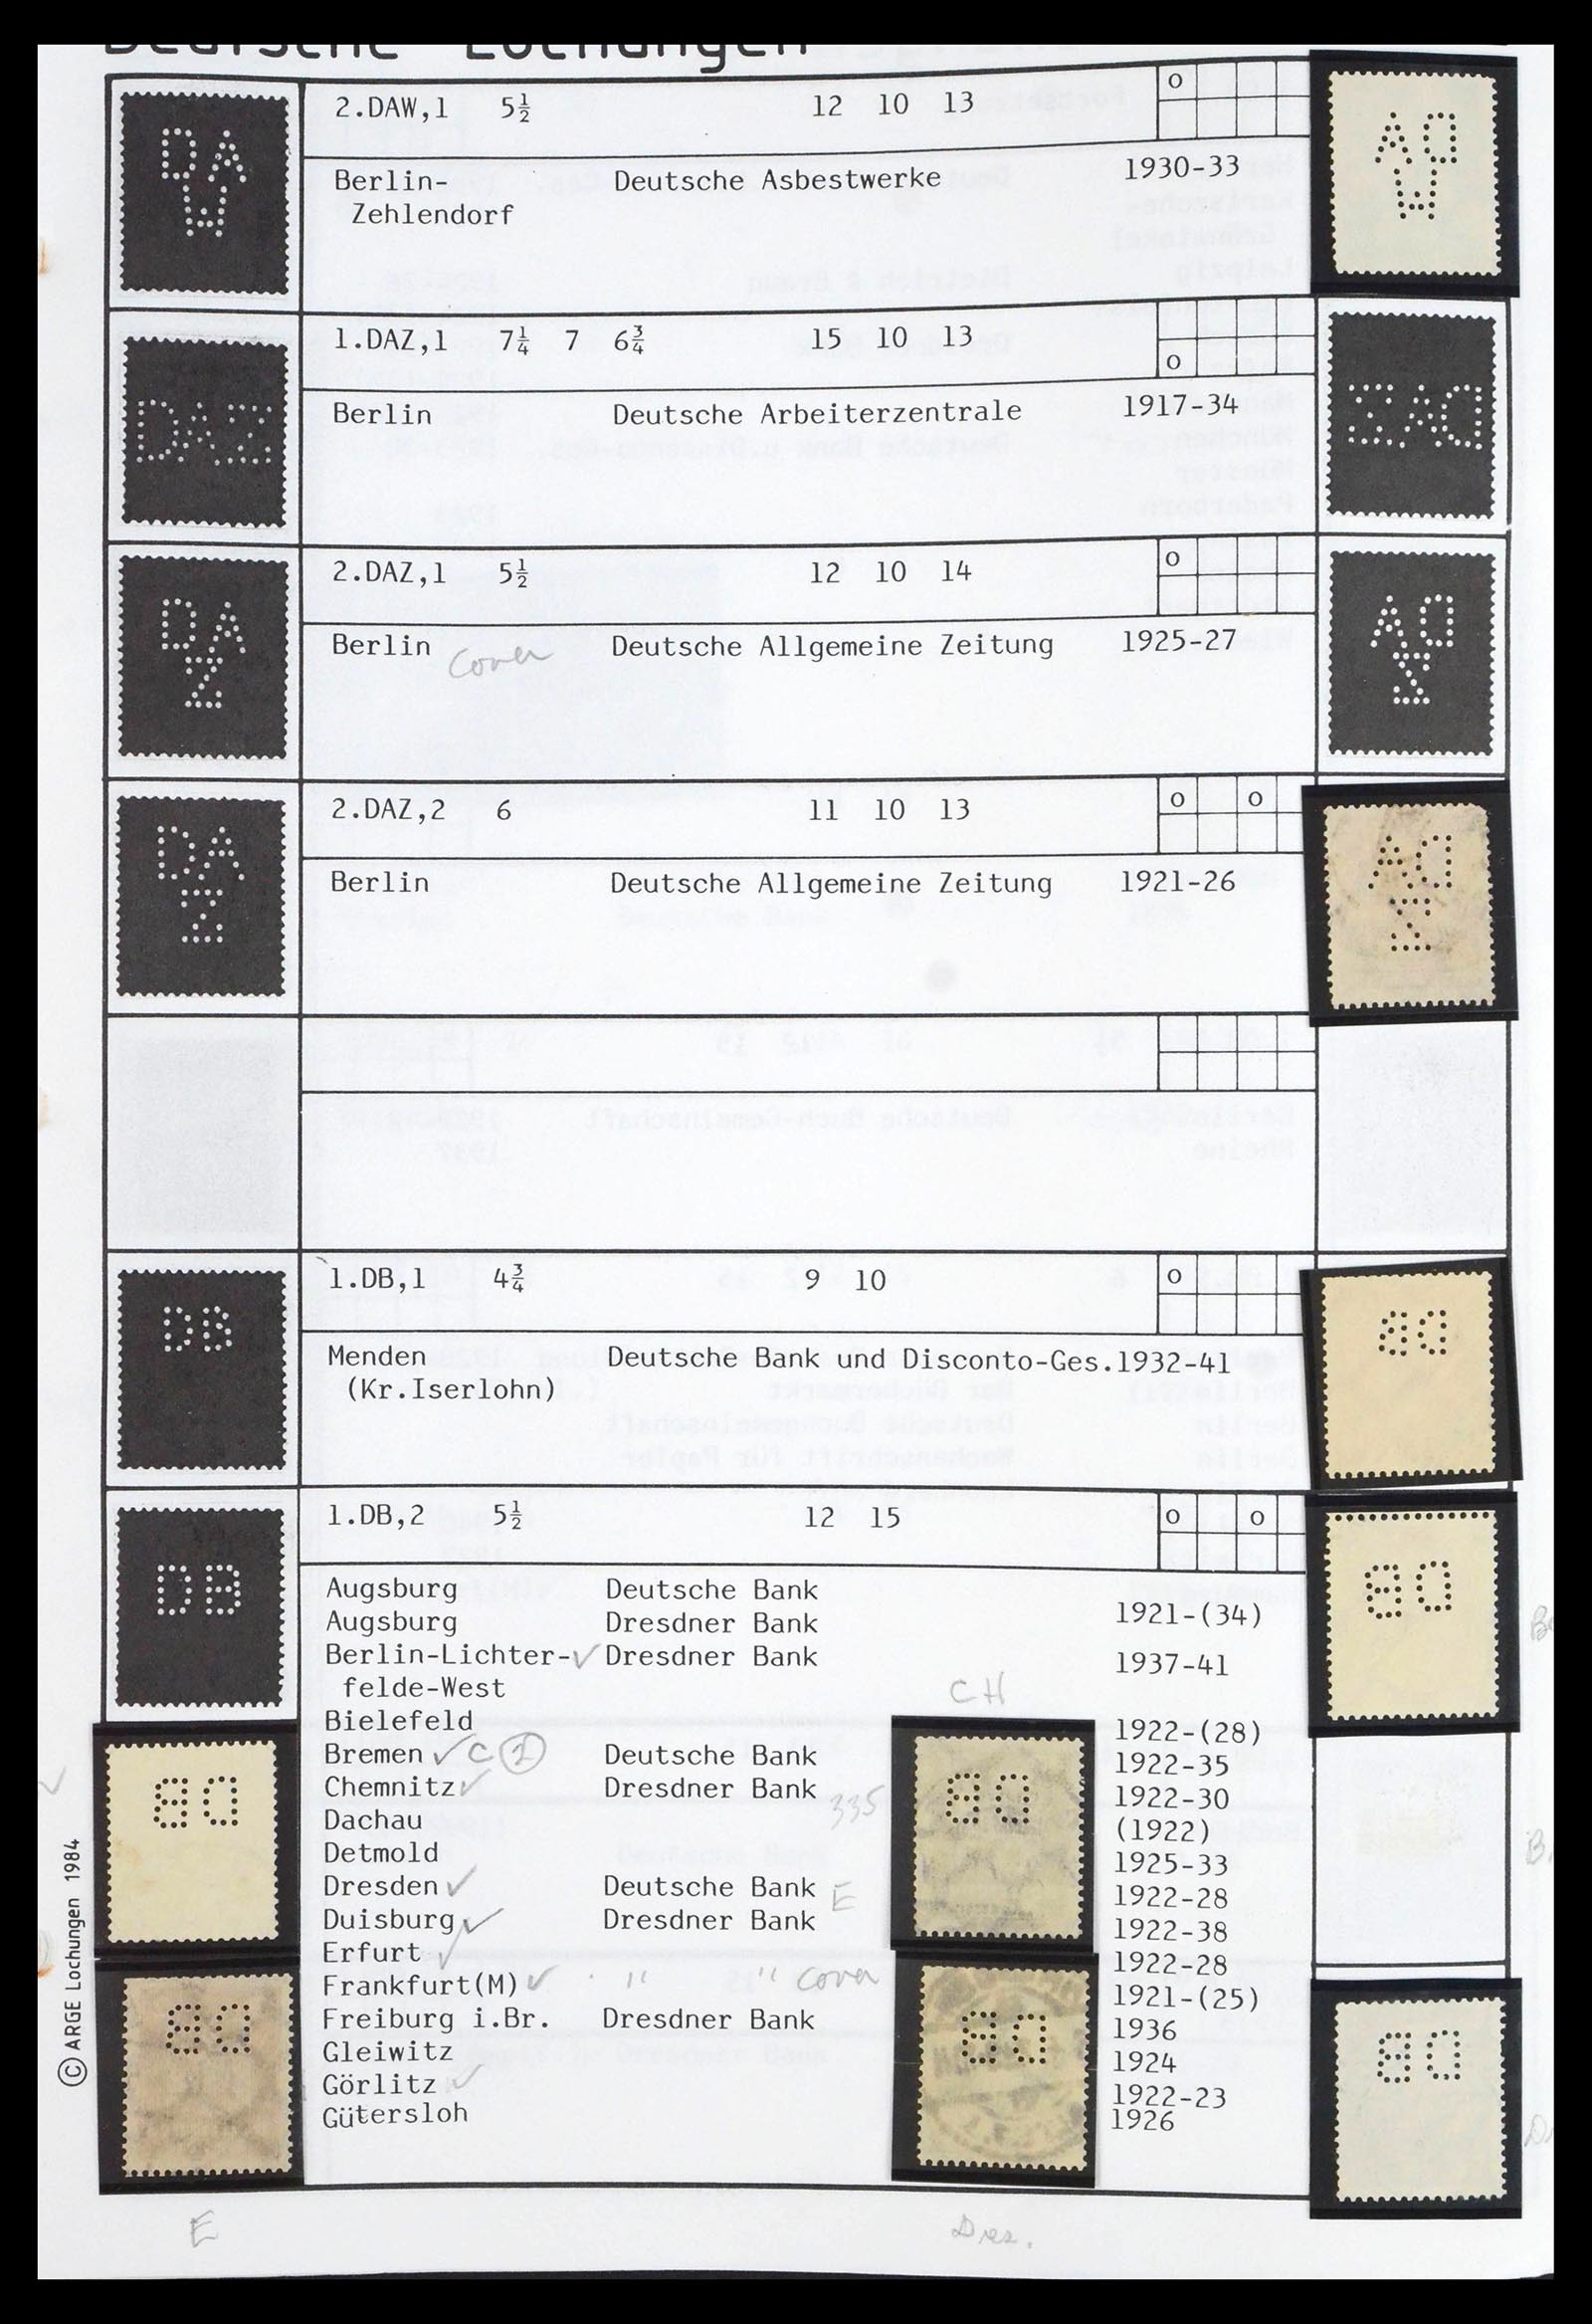 Deutsche Lochungen
DA
W
2.DAW,1 5½ 12 10 13 o
Berlin- Deutsche Asbestwerke 1930-33
Zehlendorf
DAZ
1.DAZ,1 7¼ 7 6¾ 15 10 13
o
Berlin Deutsche Arbeiterzentrale 1917-34
DA
Z
2.DAZ,1 5½ 12 10 14 o
Berlin Deutsche Allgemeine Zeitung 1925-27
Cover
DA
Z
2.DAZ,2 6 11 10 13 o o
Berlin Deutsche Allgemeine Zeitung 1921-26
DB
1.DB,1 4¾ 9 10 o
Menden Deutsche Bank und Disconto-Ges.1932-41
(Kr.Iserlohn)
DB
1.DB,2 5½ 12 15 o o
Augsburg Deutsche Bank
Augsburg Dresdner Bank 1921-(34)
Berlin-Lichter-✓ Dresdner Bank 1937-41
felde-West
CH
Bielefeld 1922-(28)
Bremen ✓ C ② Deutsche Bank 1922-35
Chemnitz ✓ Dresdner Bank 335 1922-30
Dachau (1922)
Detmold 1925-33
Dresden ✓ Deutsche Bank E 1922-28
Duisburg ✓ Dresdner Bank 1922-38
Erfurt ✓ 1922-28
Frankfurt(M) ✓ " " cover 1921-(25)
Freiburg i.Br. Dresdner Bank 1936
Gleiwitz 1924
Görlitz ✓ 1922-23
Gütersloh 1926
© ARGE Lochungen 1984
E Dres.